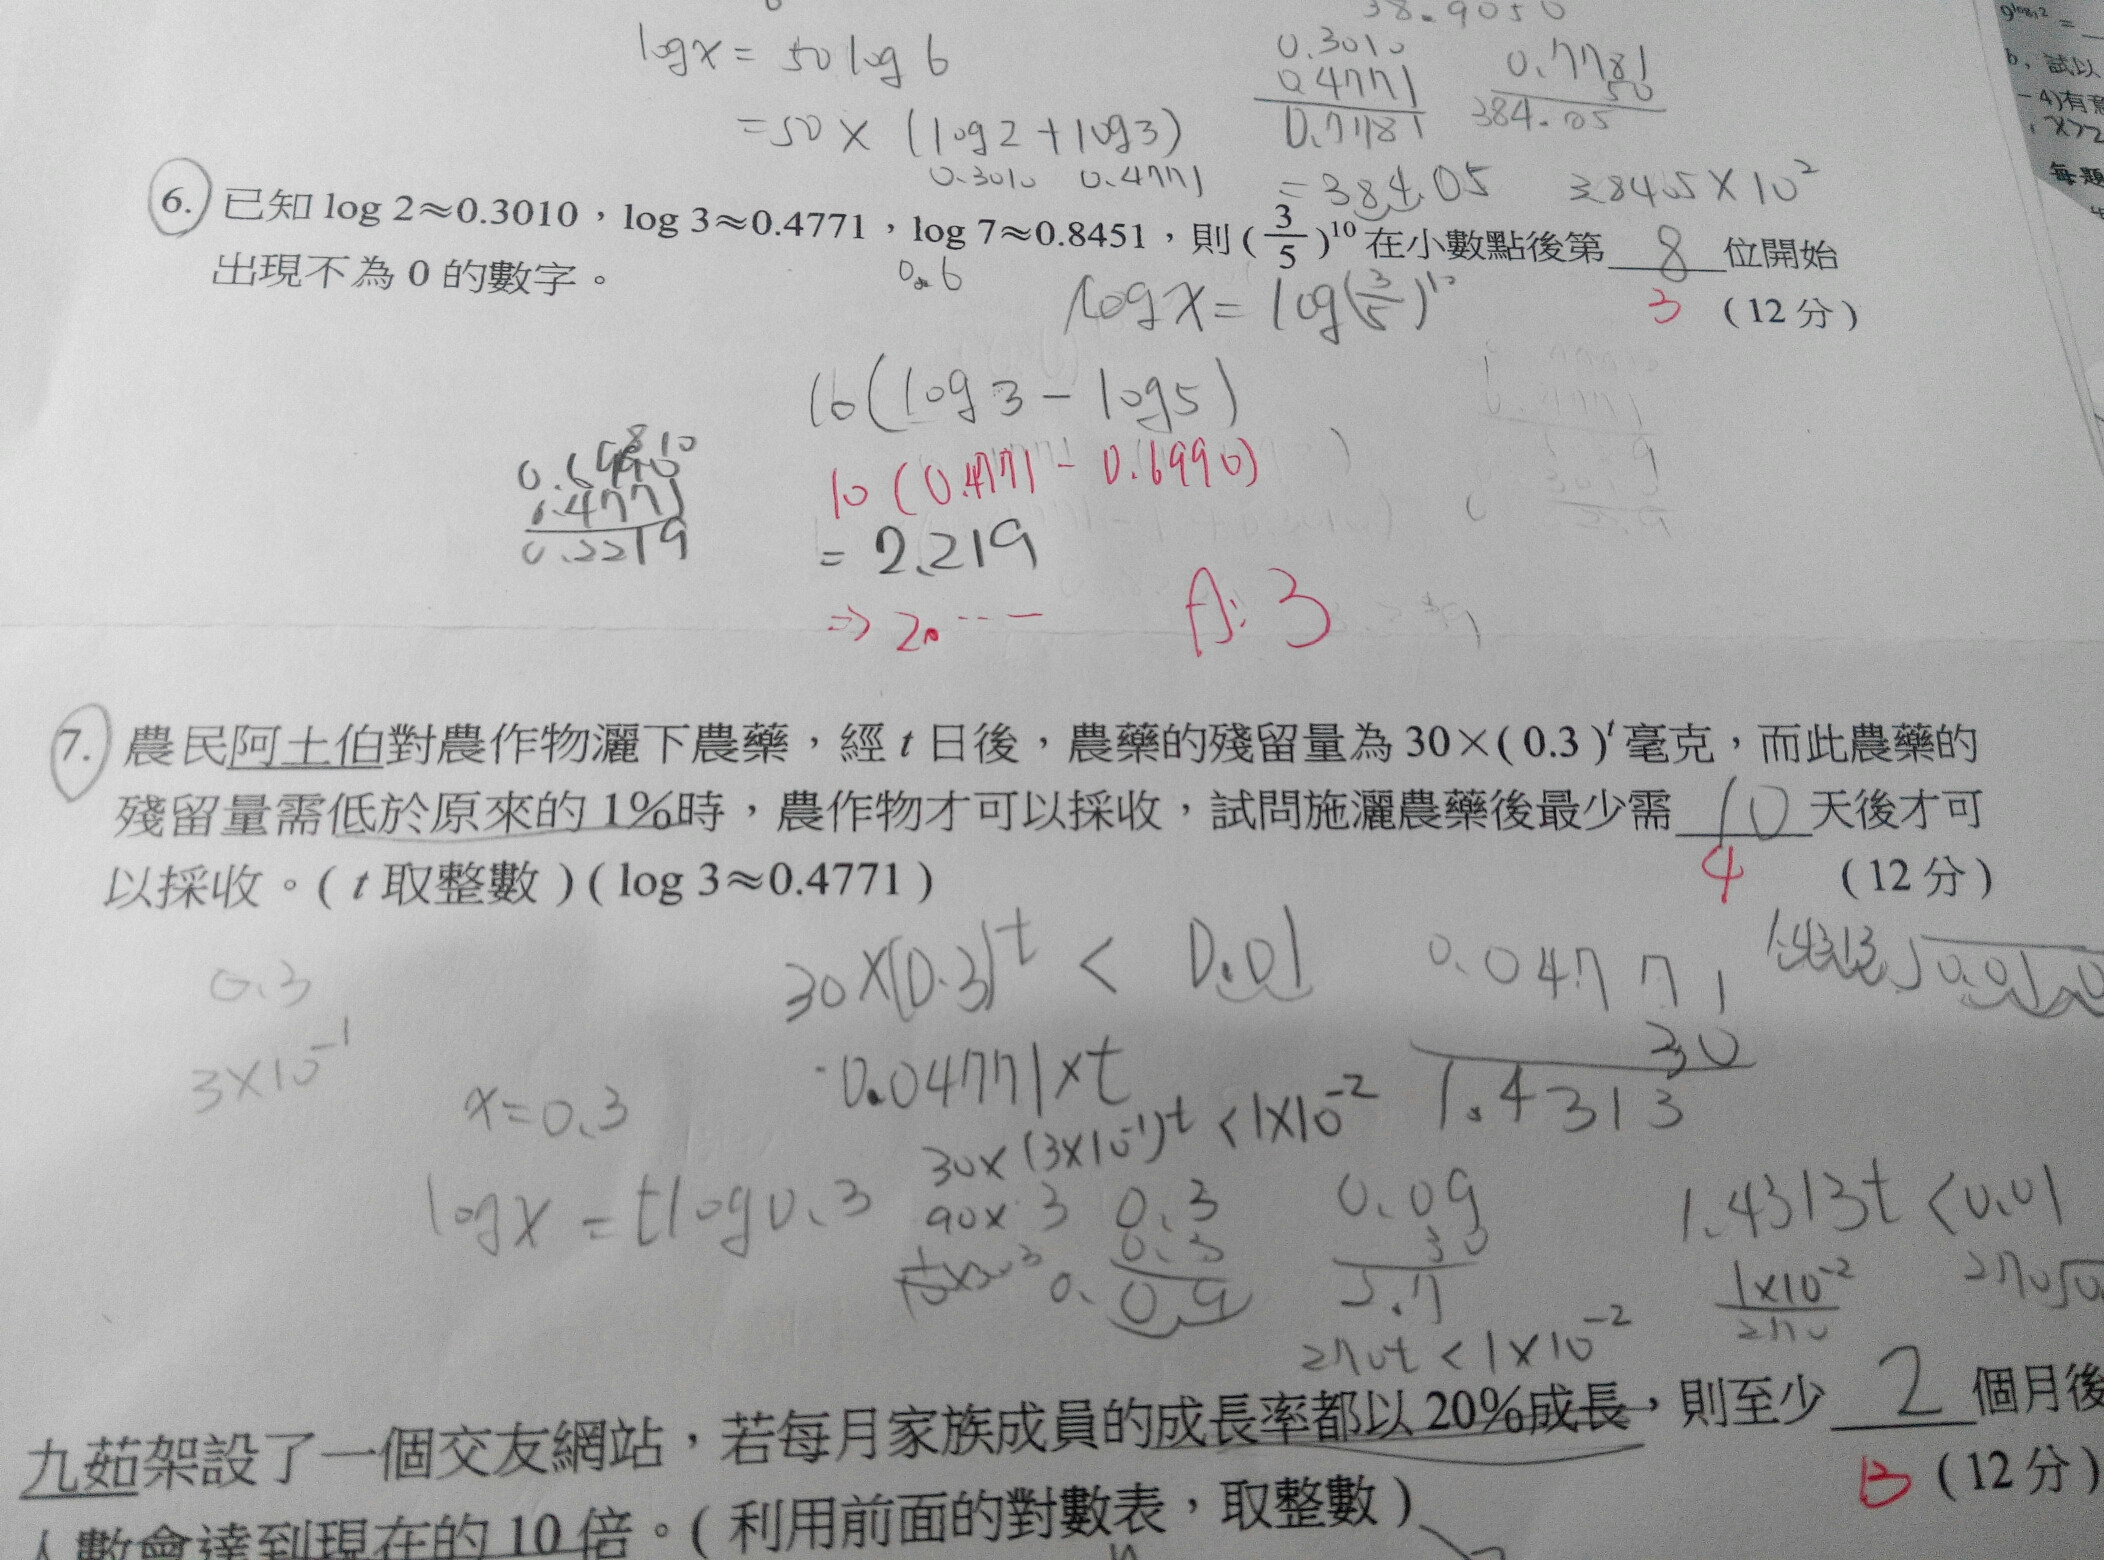 38.9050
log x = 50 log 6
= 50 × (log 2 + log 3)
0.3010 0.4771
0.3010
0.4771
0.7781
0.7781
50
384.05
= 384.05 3.8405 × 10²
6. 已知 log 2≈0.3010，log 3≈0.4771，log 7≈0.8451，則 (3/5)¹⁰ 在小數點後第 8 位開始
出現不為 0 的數字。 3 (12 分)
0.6
log x = log(3/5)¹⁰
10(log 3 − log 5)
10 (0.4771 − 0.6990)
0.4771
0.2219
= 2.219
⇒ 2.⋯ A: 3
7. 農民阿土伯對農作物灑下農藥，經 t 日後，農藥的殘留量為 30×(0.3)ᵗ 毫克，而此農藥的
殘留量需低於原來的 1%時，農作物才可以採收，試問施灑農藥後最少需 10 天後才可
以採收。(t 取整數)(log 3≈0.4771) 4 (12 分)
0.3
3×10⁻¹
x=0.3
30×(0.3)ᵗ < 0.01
0.04771
30
1.4313
0.04771×t
30×(3×10⁻¹)ᵗ <1×10⁻²
log x = t log 0.3
90×3
0.3
0.09
30
2.7
1.4313t <0.01
1×10⁻²
270
270t < 1×10⁻²
九茹架設了一個交友網站，若每月家族成員的成長率都以 20%成長，則至少 2 個月後
13 (12 分)
人數會達到現在的 10 倍。(利用前面的對數表，取整數)
每題
試以